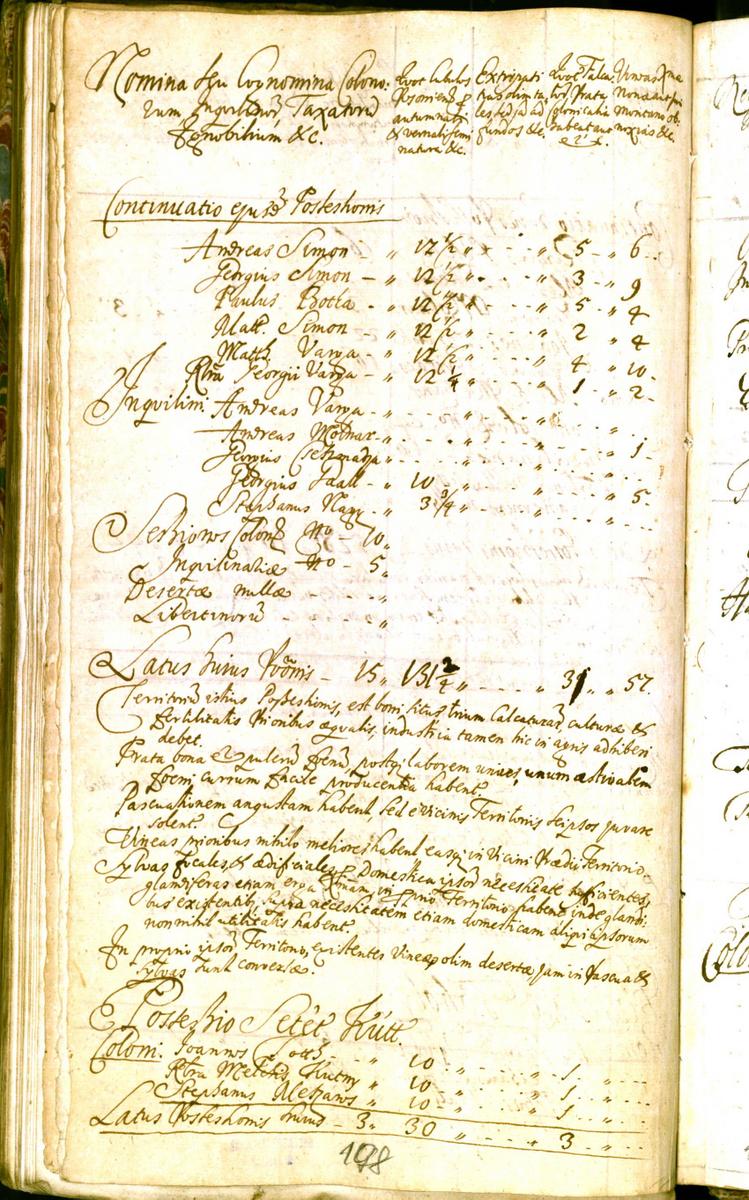 Nomina seu Cognomina Colono-
rum Inquilinorũ Taxatorũ
Ignobilium &c.
Quot Cubulos
Posoniens. p
autumnali
& vernali semi
natura &c.
Extirpati
tias olim ta
les sed ja ad
fundos &c.
Quot Talcã
vel Prata
colonicalia
habeant
Vineas
Non aut pri
montano ob
noxias &c.
Continuatio ejusd Possessionis
Andreas Simon - " 12 1/2 " - - - " 5 - " 6 -
Georgius Simon - " 12 1/2 " - - - " 3 - " 9
Paulus Botka - " 12 1/2 " - - - " 5 - " 4
Matt. Simon - " 12 1/2 " - - - " 2 - " 4
Matth. Varga - " 12 1/2 " - - - " 4 " 10 -
Rlta Georgii Varga - " 12 1/4 " - - - " 1 - " 2 -
Inquilini. Andreas Varga - " - - - " - - - " - - "
Andreas Molnar - " - - - " - - - " - - " 1 -
Georgius - " - - - " - - - " - - " - -
Georgius Gaal - " 10 - " - - - " - - " 5 -
Stephanus Nagy - " 3 3/4 " - - - " - - " - -
Sessiones Colonẽ No - 10 "
Inquilinaliæ No - 5 "
Desertæ nullæ - - - "
Libertinorũ - - - - "
Latus huius Possõnis - 15 " 131 2/4 " - - - " 31 " " 57.
Territoriũ istius Possessionis, est boni situs, trium Calcaturarũ, culturæ &
fertilitatis prioribus æqualis, industria tamen hic in agris adhiberi
debet.
Prata bona & pulcrũ fenũ, postqȝ laborem unius, unum æstivalem
foeni currum facile producentia habent.
Pascuationem angustam habent, sed e vicinis Territoriis seipsos juvare
solent.
Vineas prioribus nihilo meliores habent easqȝ in Vicini Prædii Territorio.
Sylvas focales, & ædificiales p Domestica ipsorũ necessitate sufficientes,
glandiferas etiam, in pprio Territorio habent, inde glandi-
bus existentibȝ, supra necessitatem etiam domesticam aliqȝ ipsorum
nonnihil utilitatis habent.
In proprio ipsorũ Territorio, existentes Vineæ, olim desertæ jam in Pascua &
sylvas sunt conversæ.
Possessio Setét Kútt.
Coloni. Joannes - - " 10 - " - - - " 1 - " - -
Rlta Melchis Kutny " 10 - " - - - " 1 - " - -
Stephanus Meszaros " 10 - " - - - " 1 - " - -
Latus Possessionis huius - 3 " 30 " - - - " 3 - " - -
198